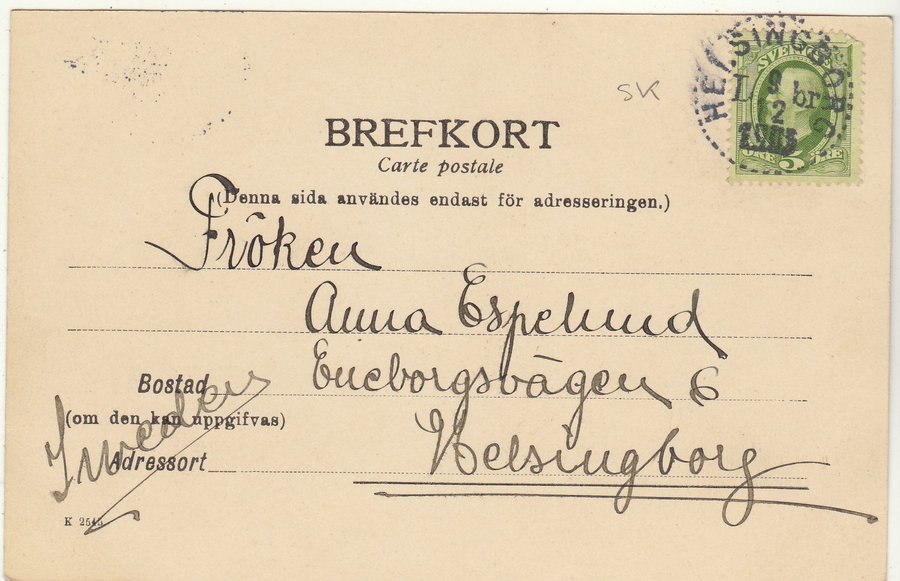 SK
HELSINGBORG
SVERIGE
L 9 br
2
1903
5
BREFKORT
Carte postale
(Denna sida användes endast för adresseringen.)
Fröken
Anna Espelund
Bostad Eneborgsvägen 6
(om den kan uppgifvas)
Sweden
Adressort Helsingborg
K 2545